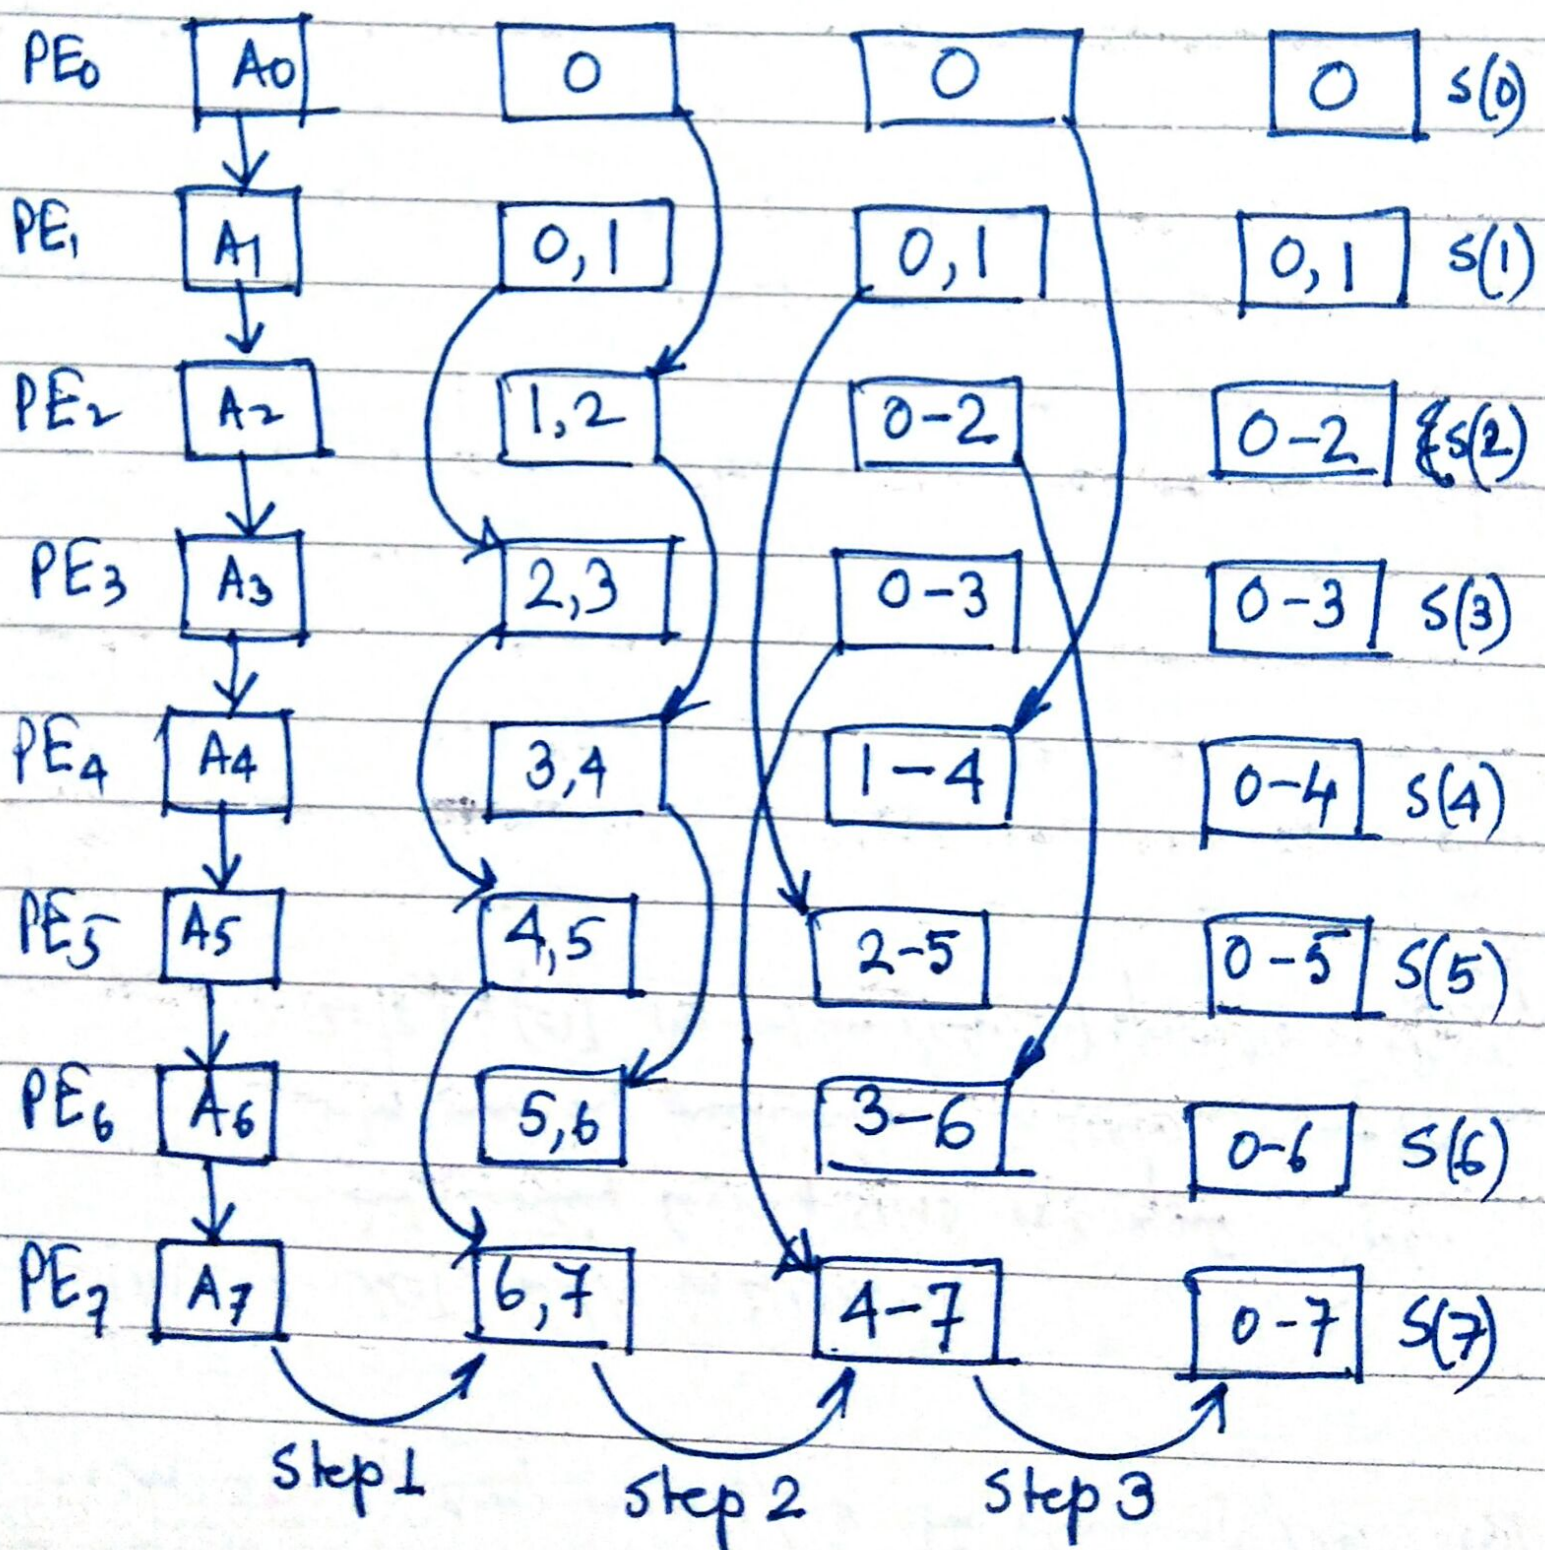 PE0 A0 0 0 0 S(0)
PE1 A1 0,1 0,1 0,1 S(1)
PE2 A2 1,2 0-2 0-2 S(2)
PE3 A3 2,3 0-3 0-3 S(3)
PE4 A4 3,4 1-4 0-4 S(4)
PE5 A5 4,5 2-5 0-5 S(5)
PE6 A6 5,6 3-6 0-6 S(6)
PE7 A7 6,7 4-7 0-7 S(7)
Step 1 Step 2 Step 3